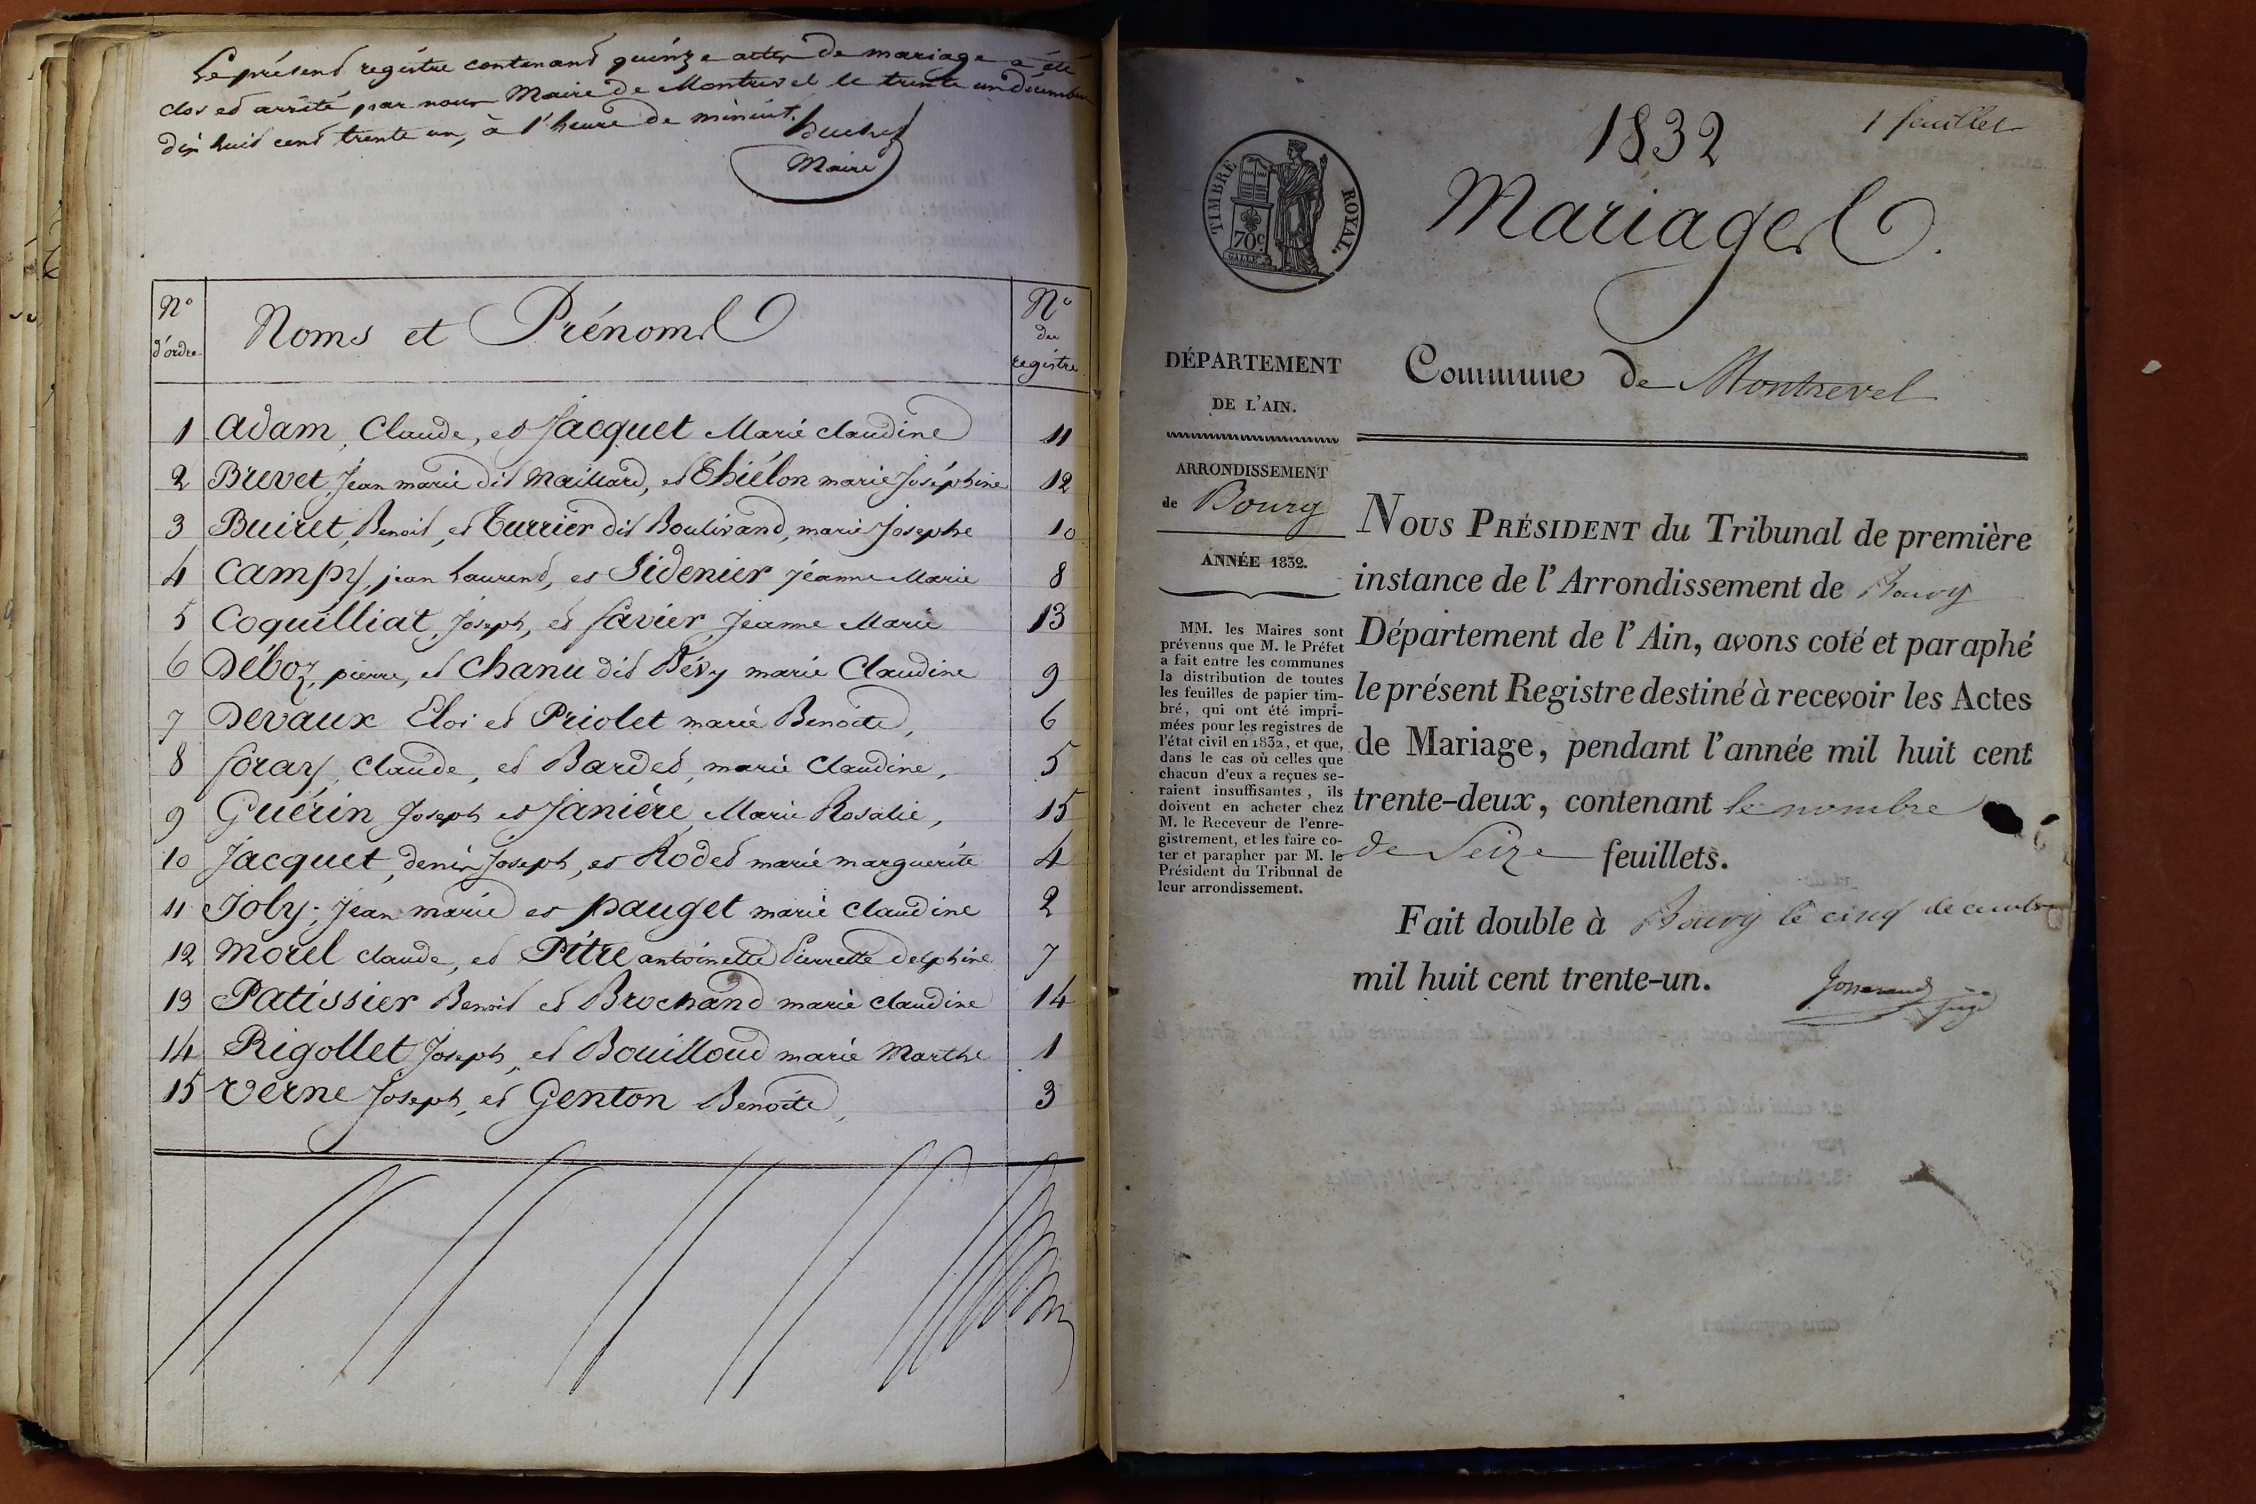 Le présent registre contenant quinze actes de mariage a été
clos et arrêté par nous Maire de Montrevel le trente un décembre
dix huit cent trente un, à l'heure de minuit.
Maire
N° d'ordre
Noms et Prénoms
N° des registre
1 Adam, Claude, et Jacquet Marie Claudine 11
2 Brevet, Jean marie dit Maillard, et Thiélon marie Joséphine 12
3 Buiret, Benoit, et Turrier dit Boulivand, marie Josephe 10
4 Campy, jean Laurent, et Sidenier Jéanne Marie 8
5 Coquilliat, Joseph, et favier, Jeanne Marie 13
6 Déboz, pierre, et Chanu dit Bévy marie Claudine 9
7 Devaux Eloi et Priolet marie Benoite, 6
8 foray, Claude, et Bardet, marie Claudine, 5
9 Guérin Joseph et Janière, Marie Rosalie, 15
10 Jacquet, denis Joseph, et Rodet marie marguerite 4
11 Joly, Jean marie et pauget marie Claudine 2
12 Morel claude, et Pitre antoinette Pierrette Delphine 7
13 Patissier Benoit et Brochand marie Claudine 14
14 Rigollet Joseph, et Bouilloud marie Marthe 1
15 Verne Joseph, et Genton Benoite, 3
1 feuillet
1832
TIMBRE ROYAL.
70 c.
Mariages.
DÉPARTEMENT
DE L'AIN.
Commune de Montrevel
ARRONDISSEMENT
de Bourg
ANNÉE 1832.
MM. les Maires sont
prévenus que M. le Préfet
a fait entre les communes
la distribution de toutes
les feuilles de papier tim-
bré, qui ont été impri-
mées pour les registres de
l'état civil en 1832, et que,
dans le cas où celles que
chacun d'eux a reçues se-
raient insuffisantes, ils
doivent en acheter chez
M. le Receveur de l'enre-
gistrement, et les faire co-
ter et parapher par M. le
Président du Tribunal de
leur arrondissement.
NOUS PRÉSIDENT du Tribunal de première
instance de l'Arrondissement de Bourg
Département de l'Ain, avons coté et paraphé
le présent Registre destiné à recevoir les Actes
de Mariage, pendant l'année mil huit cent
trente-deux, contenant le nombre
de Seize feuillets.
Fait double à Bourg le cinq decembre
mil huit cent trente-un.
juge